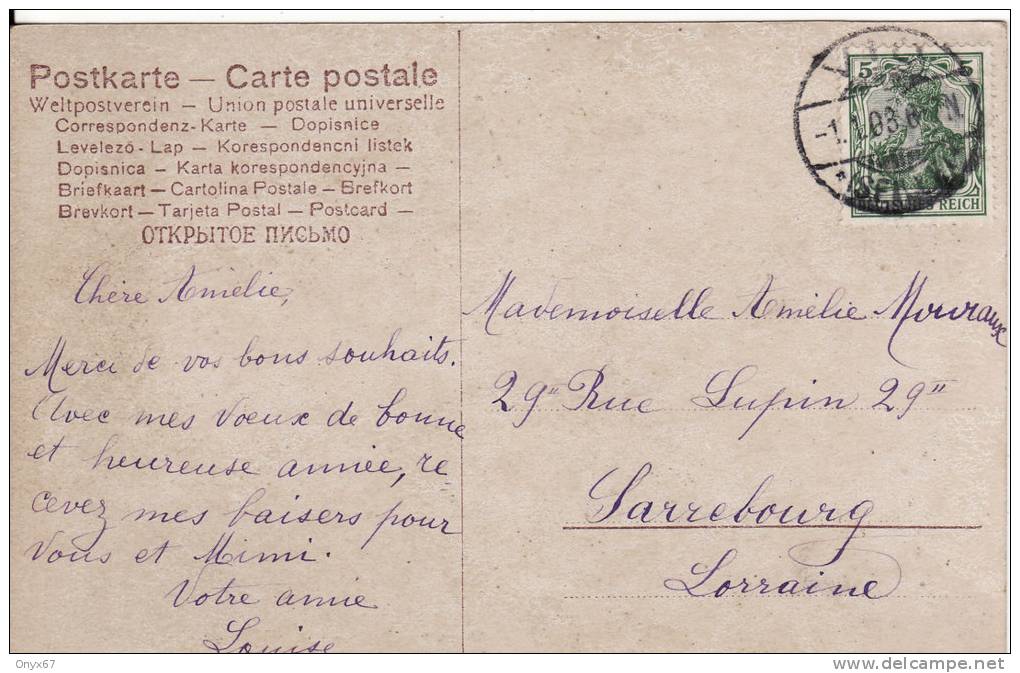 Postkarte — Carte postale
Weltpostverein — Union postale universelle
Correspondenz-Karte — Dopisnice
Levelező-Lap — Korespondencni listek
Dopisnica — Karta korespondencyjna —
Briefkaart — Cartolina Postale — Brefkort
Brevkort — Tarjeta Postal — Postcard —
ОТКРЫТОЕ ПИСЬМО
Chère Amélie,
Merci de vos bons souhaits.
Avec mes voeux de bonne
et heureuse année, re-
cevez mes baisers pour
vous et Mimi.
Votre amie
Louise
5 5
DEUTSCHES REICH
Mademoiselle Amélie Mouraux
29" Rue Lupin 29"
Sarrebourg
Lorraine
Onyx67
http://www.delcampe.net